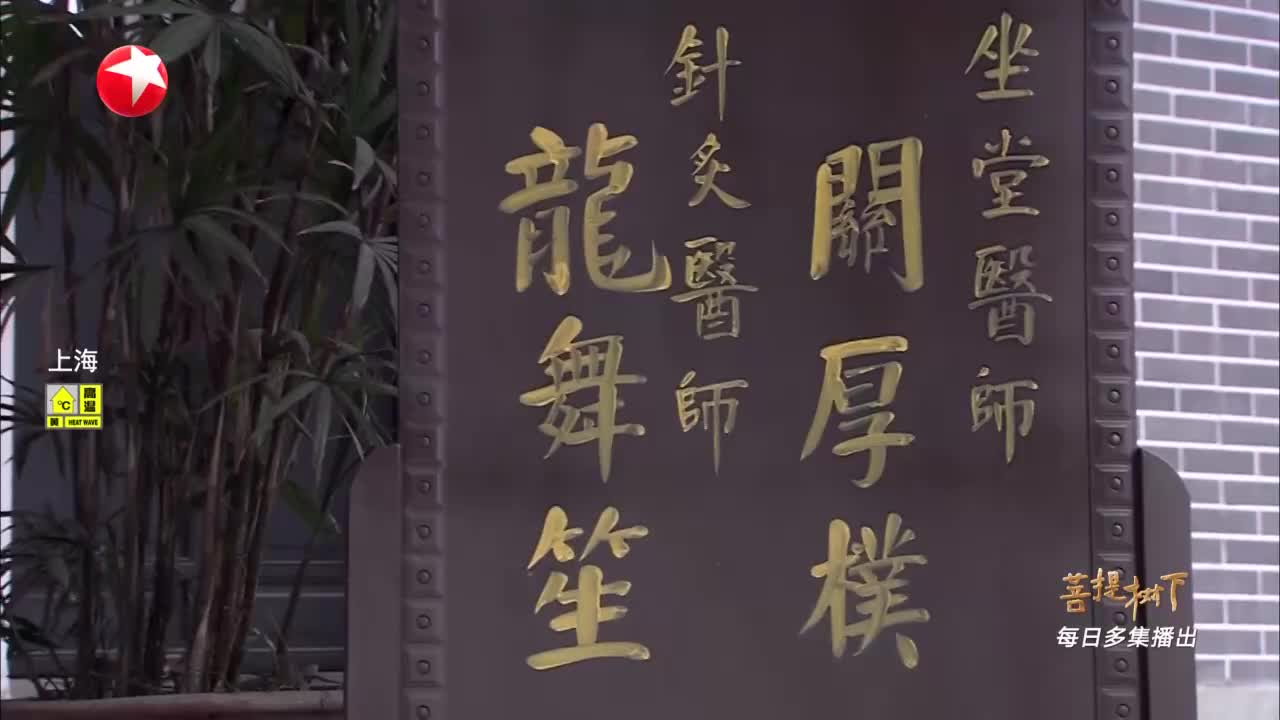 坐堂醫師
關厚樸
針灸醫師
龍舞笙
上海
℃
高温
黄 HEAT WAVE
菩提树下
每日多集播出